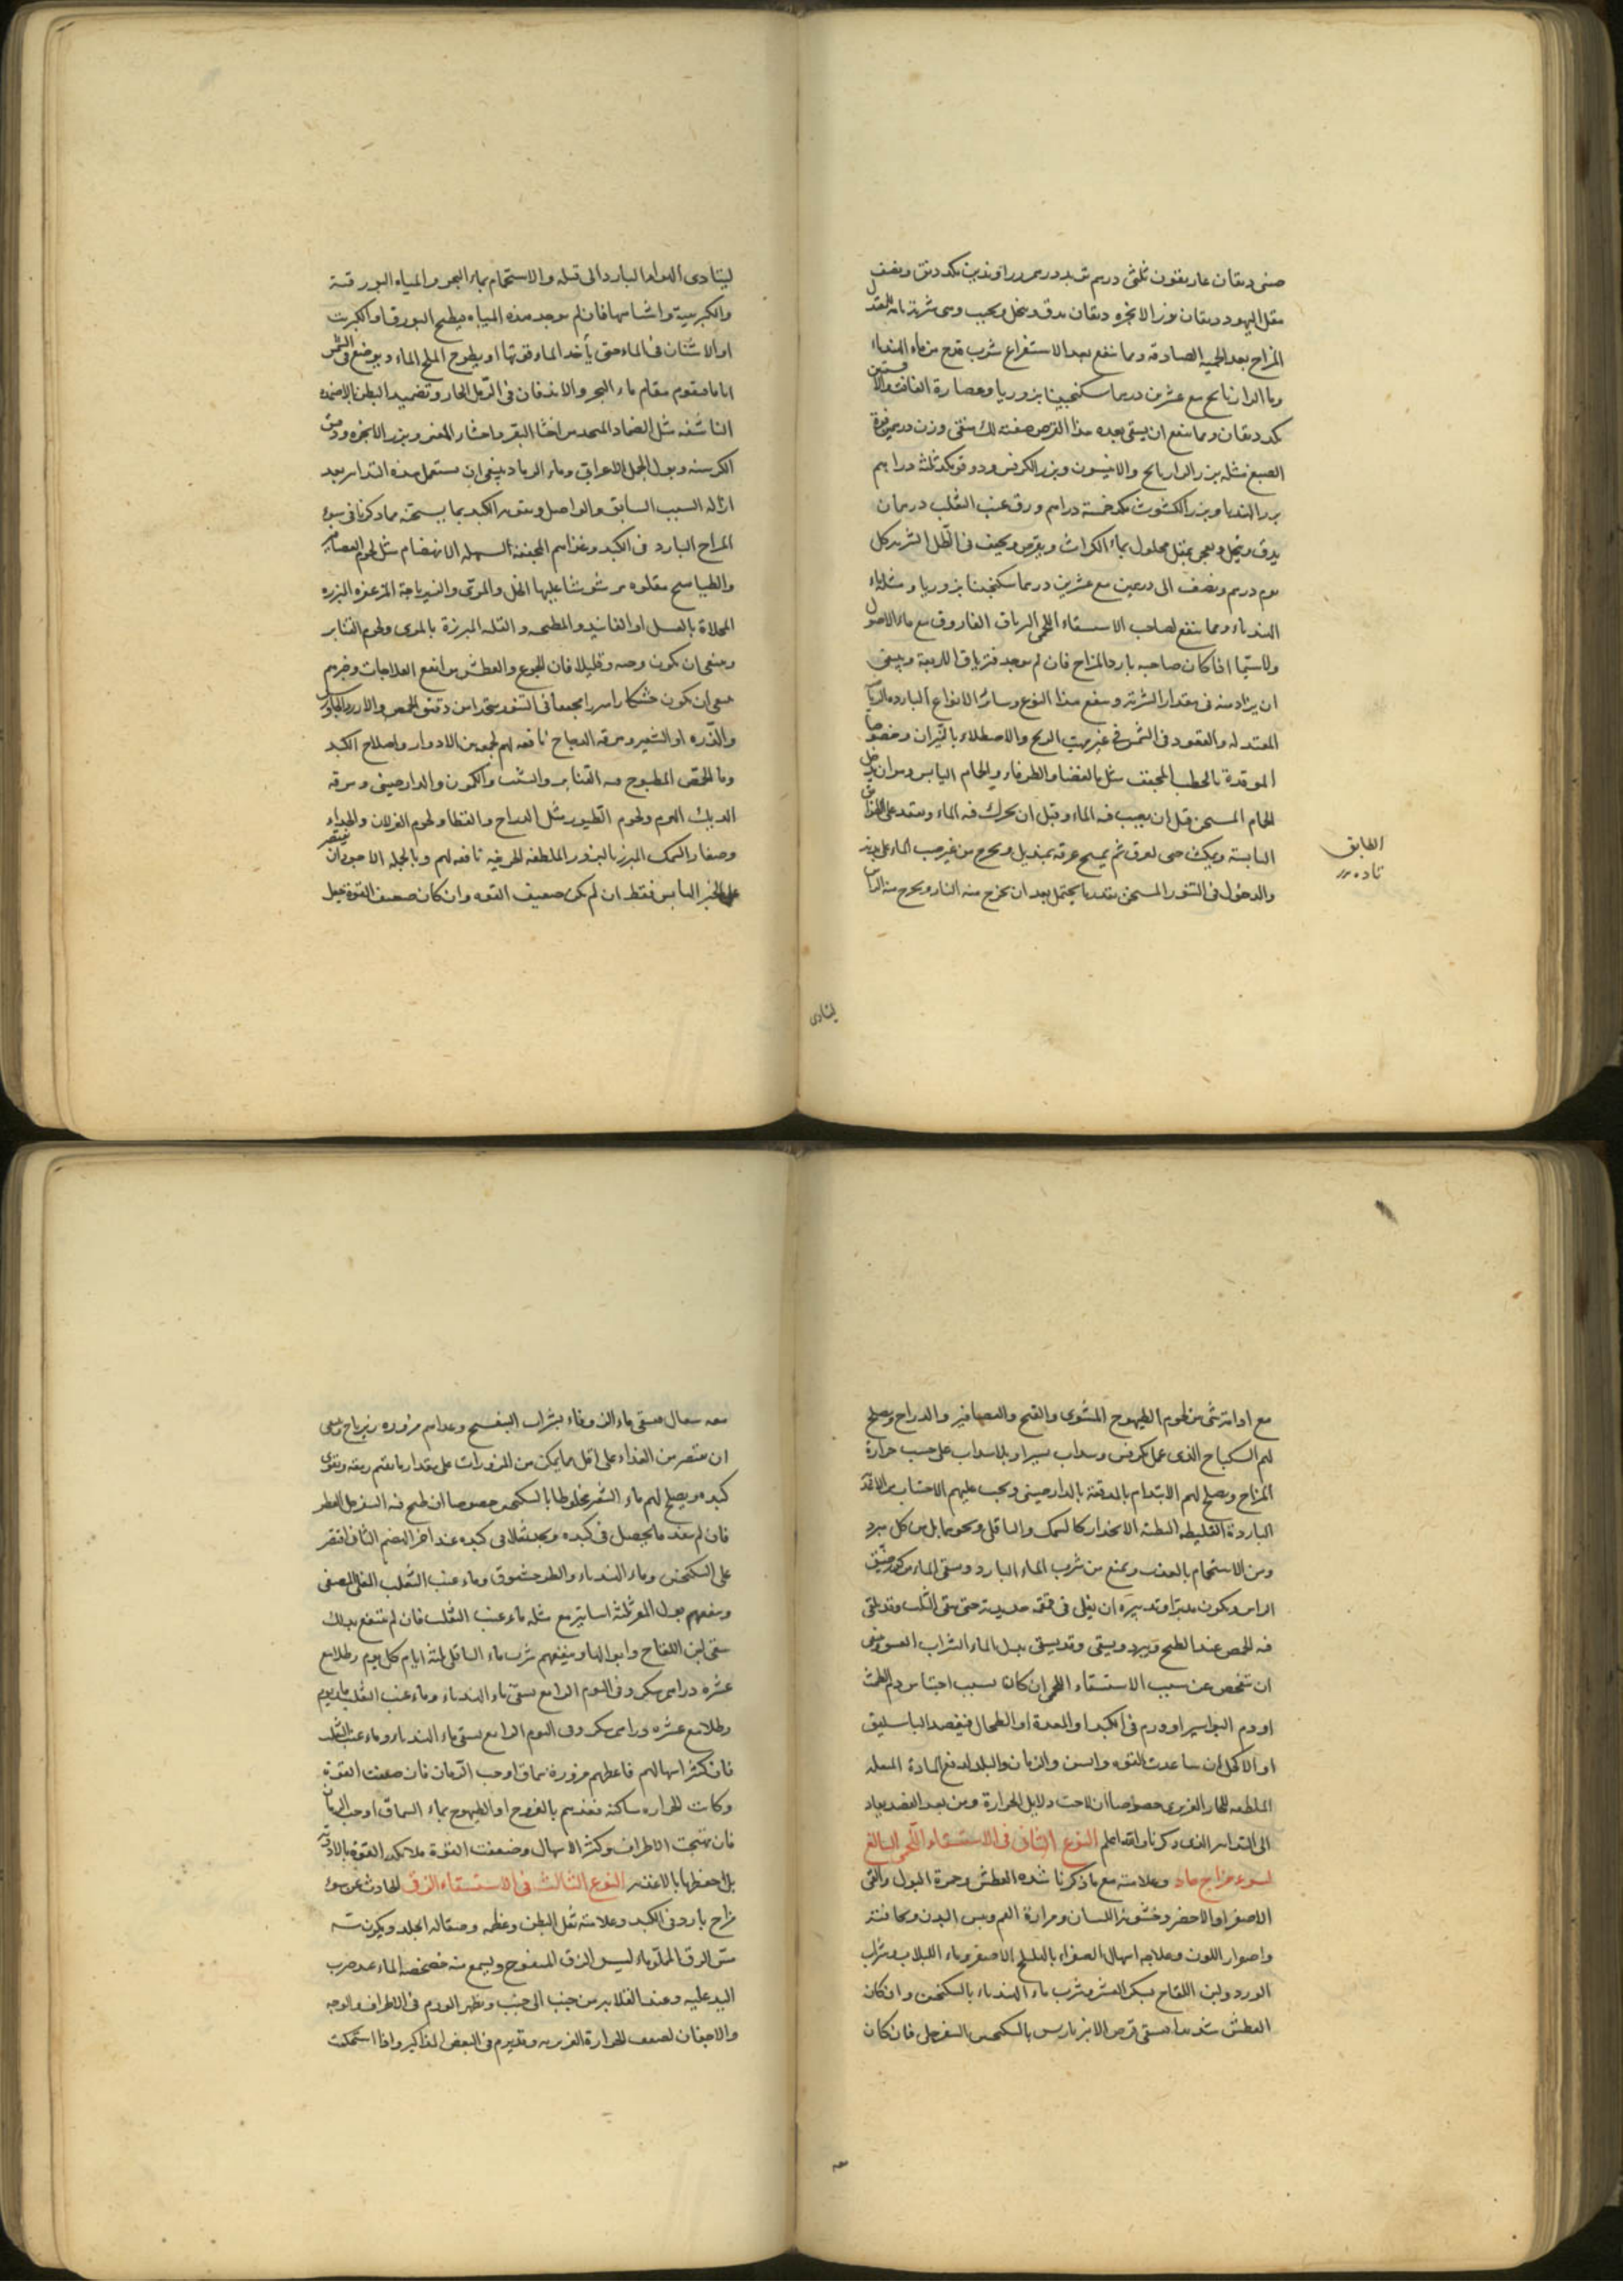 صنى دنقان غاريقون ثلثى درهم شبرم درهم وراوند نين مكد دنق ونصف
مقل اليهود دنقان بزر الانجره دنقان يدق وينخل ويحبب وهى شربة تامة للمعتدل
المزاج بعد الحمية الصادقة ومما ينفع بعد الاستفراغ شرب قدح من ماء الهندباء
وما الرازيانج مع عشرين درهما سكنجبينا بزوريا وعصارة الغافت والافسنتين
مكد دنقان ومما ينفع ان يسقى بعده هذا القرص صفته لك منقى وزن درهمين فوة
الصبغ مثله بزر الرازيانج والانيسون وبزر الكرفس ودوقو مكد ثلثة دراهم
بزر الهندبا وبزر الكشوث مكد خمسة دراهم ورق عنب الثعلب درهمان
يدق وينخل ويعجن بمقل محلول بماء الكراث ويقرص ويجفف فى الظل الشربة كل
يوم درهم ونصف الى درهمين مع عشرين درهما سكنجبينا بزوريا ومثله ماء
الهندباء ومما ينفع لصاحب الاستسقاء اللحمى الترياق الفاروق مع ماء الاصول
ولا سيما اذا كان صاحبه بارد المزاج فان لم يوجد فترياق الاربعة وينبغى
ان يزاد منه فى مقدار الشربة وينفع هذا النوع وسائر الانواع الباردة الرياضة
المعتدلة والقعود فى الشمس فى غير مهب الريح والاصطلاء بالنيران وخصوصا
الموقدة بالحطب المجفف مثل الغضا والطرفاء والحمام اليابس وهو ان يدخل
الحمام المسخن قبل ان يصب فيه الماء وقبل ان يحرك فيه الماء ويقعد على الطوابق
اليابسة ويمكث حتى يعرق ثم يمسح عرقه بمنديل ويخرج من غير صب الماء على بدنه
والدخول فى التنور المسخن بقدر ما يحتمل بعد ان يخرج منه النار ويخرج منه الراس
الطابق
تاده
ليتادى
ليتادى الهواء البارد الى قلبه والاستحمام بماء البحر والمياه البورقية
والكبريتية واشباهها فان لم يوجد هذه المياه يطبخ البورق او الكبريت
او الاشنان فى الماء حتى ياخذ الماء قوتها او يطرح الملح الماء ويوضع فى الشمس
اياما فيقوم مقام ماء البحر والاندفان فى الرمل الحار وتضميد البطن بالاضمدة
الناشفة مثل الضماد المتخذ من اخثاء البقر واخثار المعز وبزر الانجره ودقيق
الكرسنه وبول الجمل الاعرابى وماء الرماد ينبغى ان يستعمل هذه التدابير بعد
ازالة السبب السابق والواصل وتقوية الكبد بما يسخنه مما ذكرنا فى سوء
المزاج البارد فى الكبد وغذاهم المجففة السهلة الانهضام مثل لحوم العصافير
والطياهيج مقلوة مرشوشا عليها الخل والمرى والزيرباجة المزعفرة المبزرة
المحلاة بالعسل او الفانيذ والمطجنة والقلية المبزرة بالمرى ولحوم القنابر
وينبغى ان يكون وجبة وقليلا فان الجوع والعطش من انفع العلاجات وخبزهم
ينبغى ان يكون خشكارا مبزرا مجففا فى التنور متخذا من دقيق الحمص والارز والجاورس
والذرة او الشعير ومرقة الدجاج نافعة لهم لجمعه بين الادرار واصلاح الكبد
وماء الحمص المطبوح فيه القنابر والشبت والكمون والدارصينى ومرقة
الديك الهرم ولحوم الطيور مثل الدراج والقطا ولحوم الغزلان والجداء
وصغار السمك المبزر بالبزور الملطفة الحريفة نافعة لهم وبالجملة الاجود ان يقتصر
على الخبز اليابس فقط ان لم يكن ضعيف القوة وان كان ضعيف القوة جعل
مع ادامه شئ من لحوم الطيهوج المشوى والقبج والعصافير والدراج ويصلح
لهم السكباج الذى عمل بكرفس وسداب يسيرا وبلا سداب على حسب حرارة
المزاج ويصلح لهم الابتدام بالمدققة بالدارصينى ويجب عليهم الاجتناب من الاغذية
الباردة الغليظة البطئة الانحدار كالسمك والباقلى ونحوهما بل من كل مبرد
ومن الاستحمام بالعذب ويمنع من شرب الماء البارد ويسقى الماء من كوز ضيق
الراس ويكون مدبرا وتدبيره ان يغلى فى قمقمة حديدية حتى يبقى الثلث وقد يلقى
فيه الحمص عند الطبخ ويبرد ويسقى وقد يسقى بدل الماء الشراب العتيق وينبغى
ان تفحص عن سبب الاستسقاء اللحمى ان كان بسبب احتباس دم الطمث
او دم البواسير او ورم فى الكبد او المعدة او الطحال فيفصد الباسليق
او الاكحل ان ساعدت القوة والسن والزمان والبلد لدفع المادة المعلة
المطفئة للحار الغريزى خصوصا ان لاحت دلايل الحرارة ومن بعد الفصد يعاد
الى التدابير الذى ذكرنا والله اعلم النوع الثانى فى الاستسقاء اللحمى البالغ
لسوء مزاج حار وعلامته مع ما ذكرنا شدة العطش وحمرة البول والقئ
الاصفر او الاخضر وخشونة اللسان ومرارة الفم ويبس البدن ونحافته
واصفرار اللون وعلاجه اسهال الصفراء بالهليلج الاصفر وماء اللبلاب وشراب
الورد ولبن اللقاح بسكر العشر وشرب ماء الهندباء بالسكنجبين وان كان
العطش شديدا يسقى قرص الانبرباريس بالسكنجبين السفرجلى فان كان
معه
معه سعال يسقى ماء الزوفاء بشراب البنفسج وغذاهم مزورة زيرباج وينبغى
ان يقتصر من الغذاء على اقل ما يمكن من المزورات على مقدار ما يقيم رمقه ويقوى
كبده ويصلح لهم ماء الشعير مخلوطا بالسكنجبين خصوصا ان طبخ فيه السفرجل العطر
فان لم ينفذ ما يحصل فى كبده ويجد ثقلا فى كبده عند اخر الهضم الثانى اقتصر
على السكنجبين وماء الهندباء والطرخشقوق وماء عنب الثعلب المغلى المصفى
وينفعهم بول المعز ثلثة اساتير مع مثله ماء عنب الثعلب فان لم ينتفع بذلك
سقى لبن اللقاح وابوالها وينفعهم شرب ماء الباقلى ثلثة ايام كل يوم رطلا مع
عشرة دراهم سكر وفى اليوم الرابع يسقى ماء الهندباء وماء عنب الثعلب ما يدوم
رطلا مع عشره دراهم سكر وفى اليوم الرابع يسقى ماء الهندباء وماء عنب الثعلب
فان كثر اسهالهم فاعطهم مزورة سماق او حب الرمان فان ضعفت القوة
وكانت الحرارة ساكنة فغذهم بالفروج او الطيهوج بماء السماق او حب الرمان
فان تهيجت الاطراف وكثر الاسهال وضعفت القوة فلا تكد القوة بالادوية
بل احفظها بالاغذية النوع الثالث فى الاستسقاء الزقى الحادث عن سوء
مزاج بارد فى الكبد وعلامته ثقل البطن وعظمه وصقالة الجلد ويكون مسه
مس الزق المملو ماء ليس الزق المنفوخ ويسمع منه خضخضة الماء عند ضرب
اليد عليه وعند انقلابه من جنب الى جنب ويظهر الورم فى الاطراف والوجه
والاجفان لضعف الحرارة الغريزية وقد يرم فى البعض المذاكير واذا استحكمت